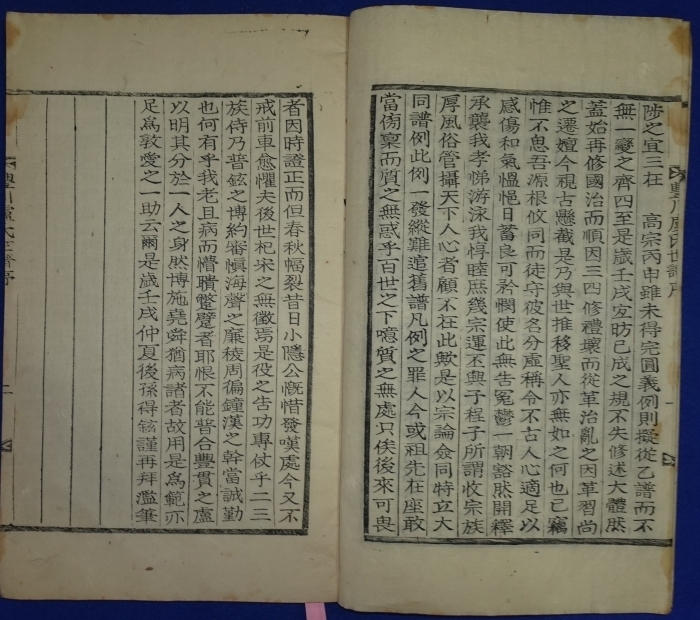 陟之宜三在 高宗丙申雖未得完圓義例則擬從乙譜而不
無一變之齊四至是歲壬戌宏昉已成之規不失修述大體然
蓋始再修國治而順因三四修禮壞而從革治亂之因革習尚
之遷嬗今視古懸截是乃與世推移聖人亦無如之何也已竊
惟不思吾源根伩同而徒守彼名分虛稱令不古人心適足以
感傷和氣慍悒日蓄良可矜憫使此無告冤鬱一朝豁然開釋
承襲我孝悌游泳我惇睦庶幾宗運丕興子程子所謂收宗族
厚風俗管攝天下人心者顧不在此歟是以宗論僉同特立大
同譜例此例一發縱難逭舊譜凡例之罪人今或祖先在座敢
當傍稟而質之無惑乎百世之下噫質之無處只俟後來可畏
豐川盧氏世譜序
一
者因時證正而但春秋幅裂昔日小隱公慨惜發嘆處今又不
戒前車愈懼夫後世杞宋之無徵焉是役之告功專仗乎二三
族侍乃普鉉之博約審愼海聲之廉稜周偏鐘漢之幹當誠勤
也何有乎我老且病而懵聵蹩躄者耶恨不能普合豐貫之盧
以明其分於一人之身然博施堯舜猶病諸者故用是爲範亦
足爲敦愛之一助云爾是歲壬戌仲夏後孫得鉉謹再拜濫筆